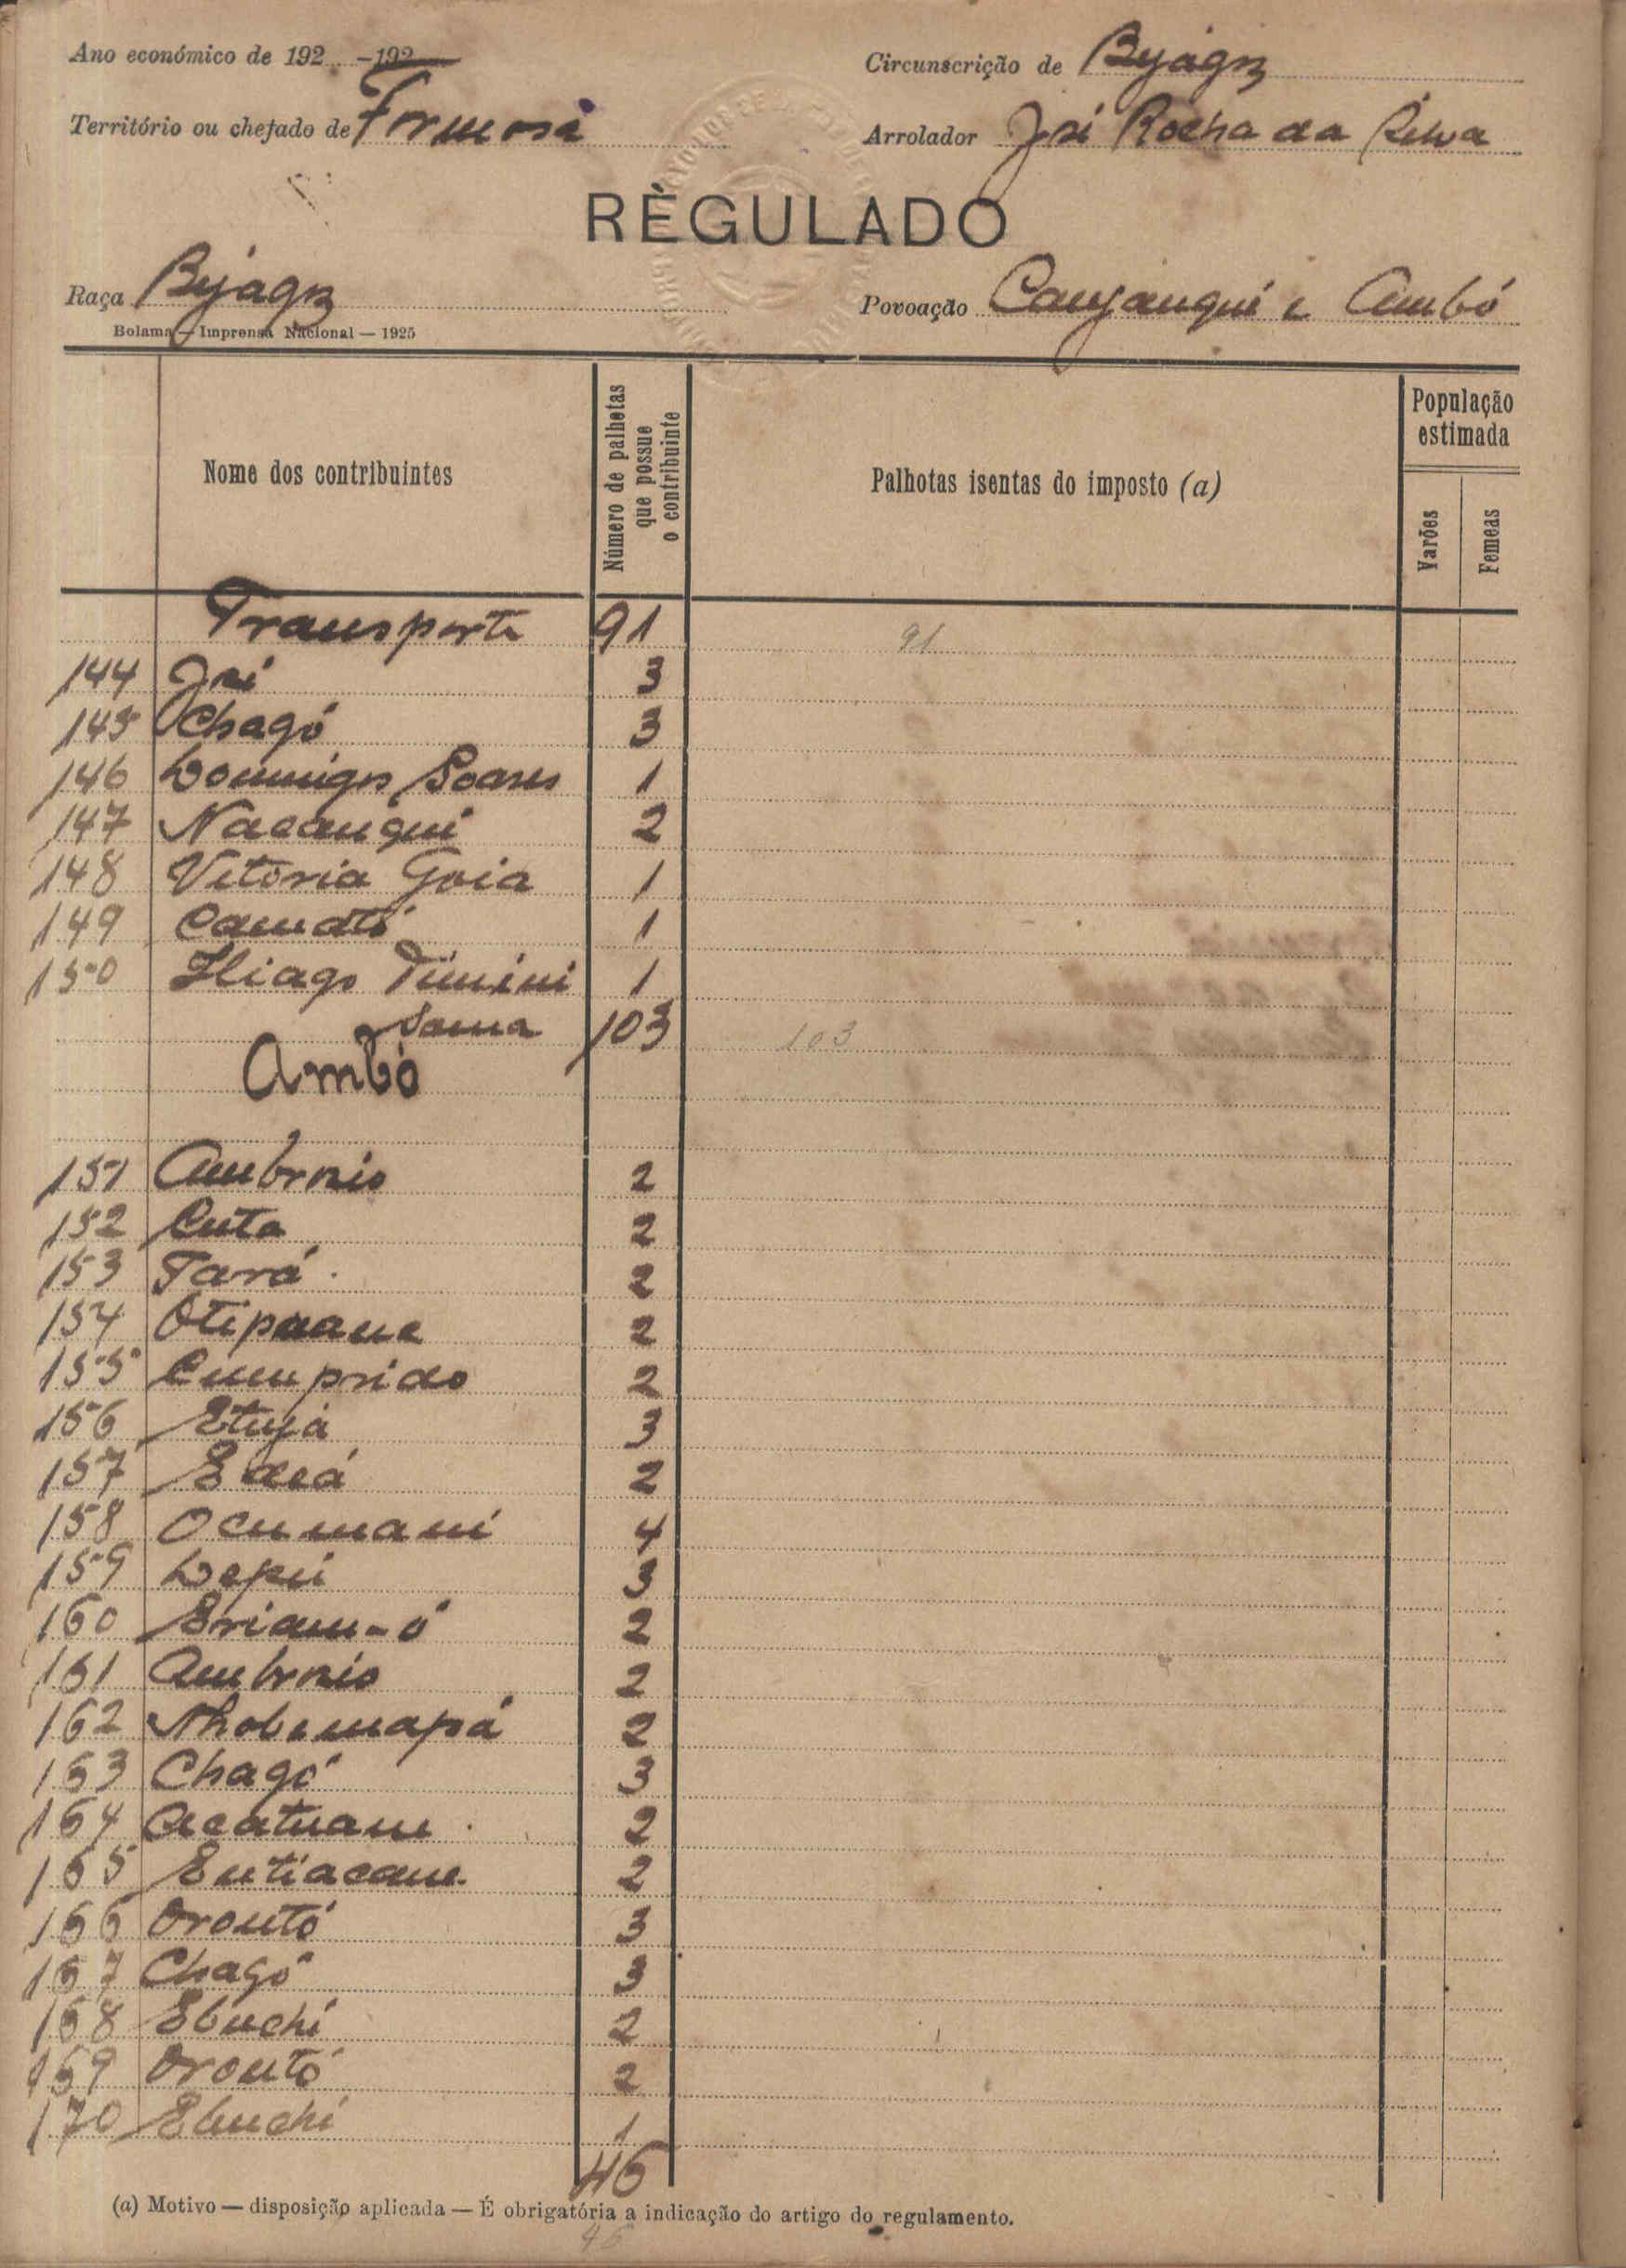 Ano económico de 192 -192
Circunscrição de Byágoz
Território ou chefado de Formosa
Arrolador José Rocha da Silva
RÈGULADO
Raça Byágoz
Povoação Canjanqui e Ambó
Bolama — Imprensa Nacional — 1925
Nome dos contribuintes
Número de palhotas que possue o contribuinte
Palhotas isentas do imposto (a)
População estimada
Varões
Femeas
Transporte 91 91
144 José 3
145 Chagó 3
146 Domingos Soares 1
147 Nacanqui 2
148 Vitoria Goia 1
149 Camató 1
150 Thiago Timini 1
Soma 103 103
Ambó
151 Ambrosio 2
152 Cuta 2
153 Tará 2
154 Otipaane 2
155 Cumprido 2
156 Etujá 3
157 2
158 Ocumani 4
159 Depú 3
160 Eriam-ó 2
161 Ambrosio 2
162 2
163 Chagó 3
164 Acatuam 2
165 Entiacam 2
166 Orontó 3
167 Chagó 3
168 Ebuchi 2
169 Orontó 2
170 Ebuchi 1
46
(a) Motivo — disposição aplicada — É obrigatória a indicação do artigo do regulamento.
46